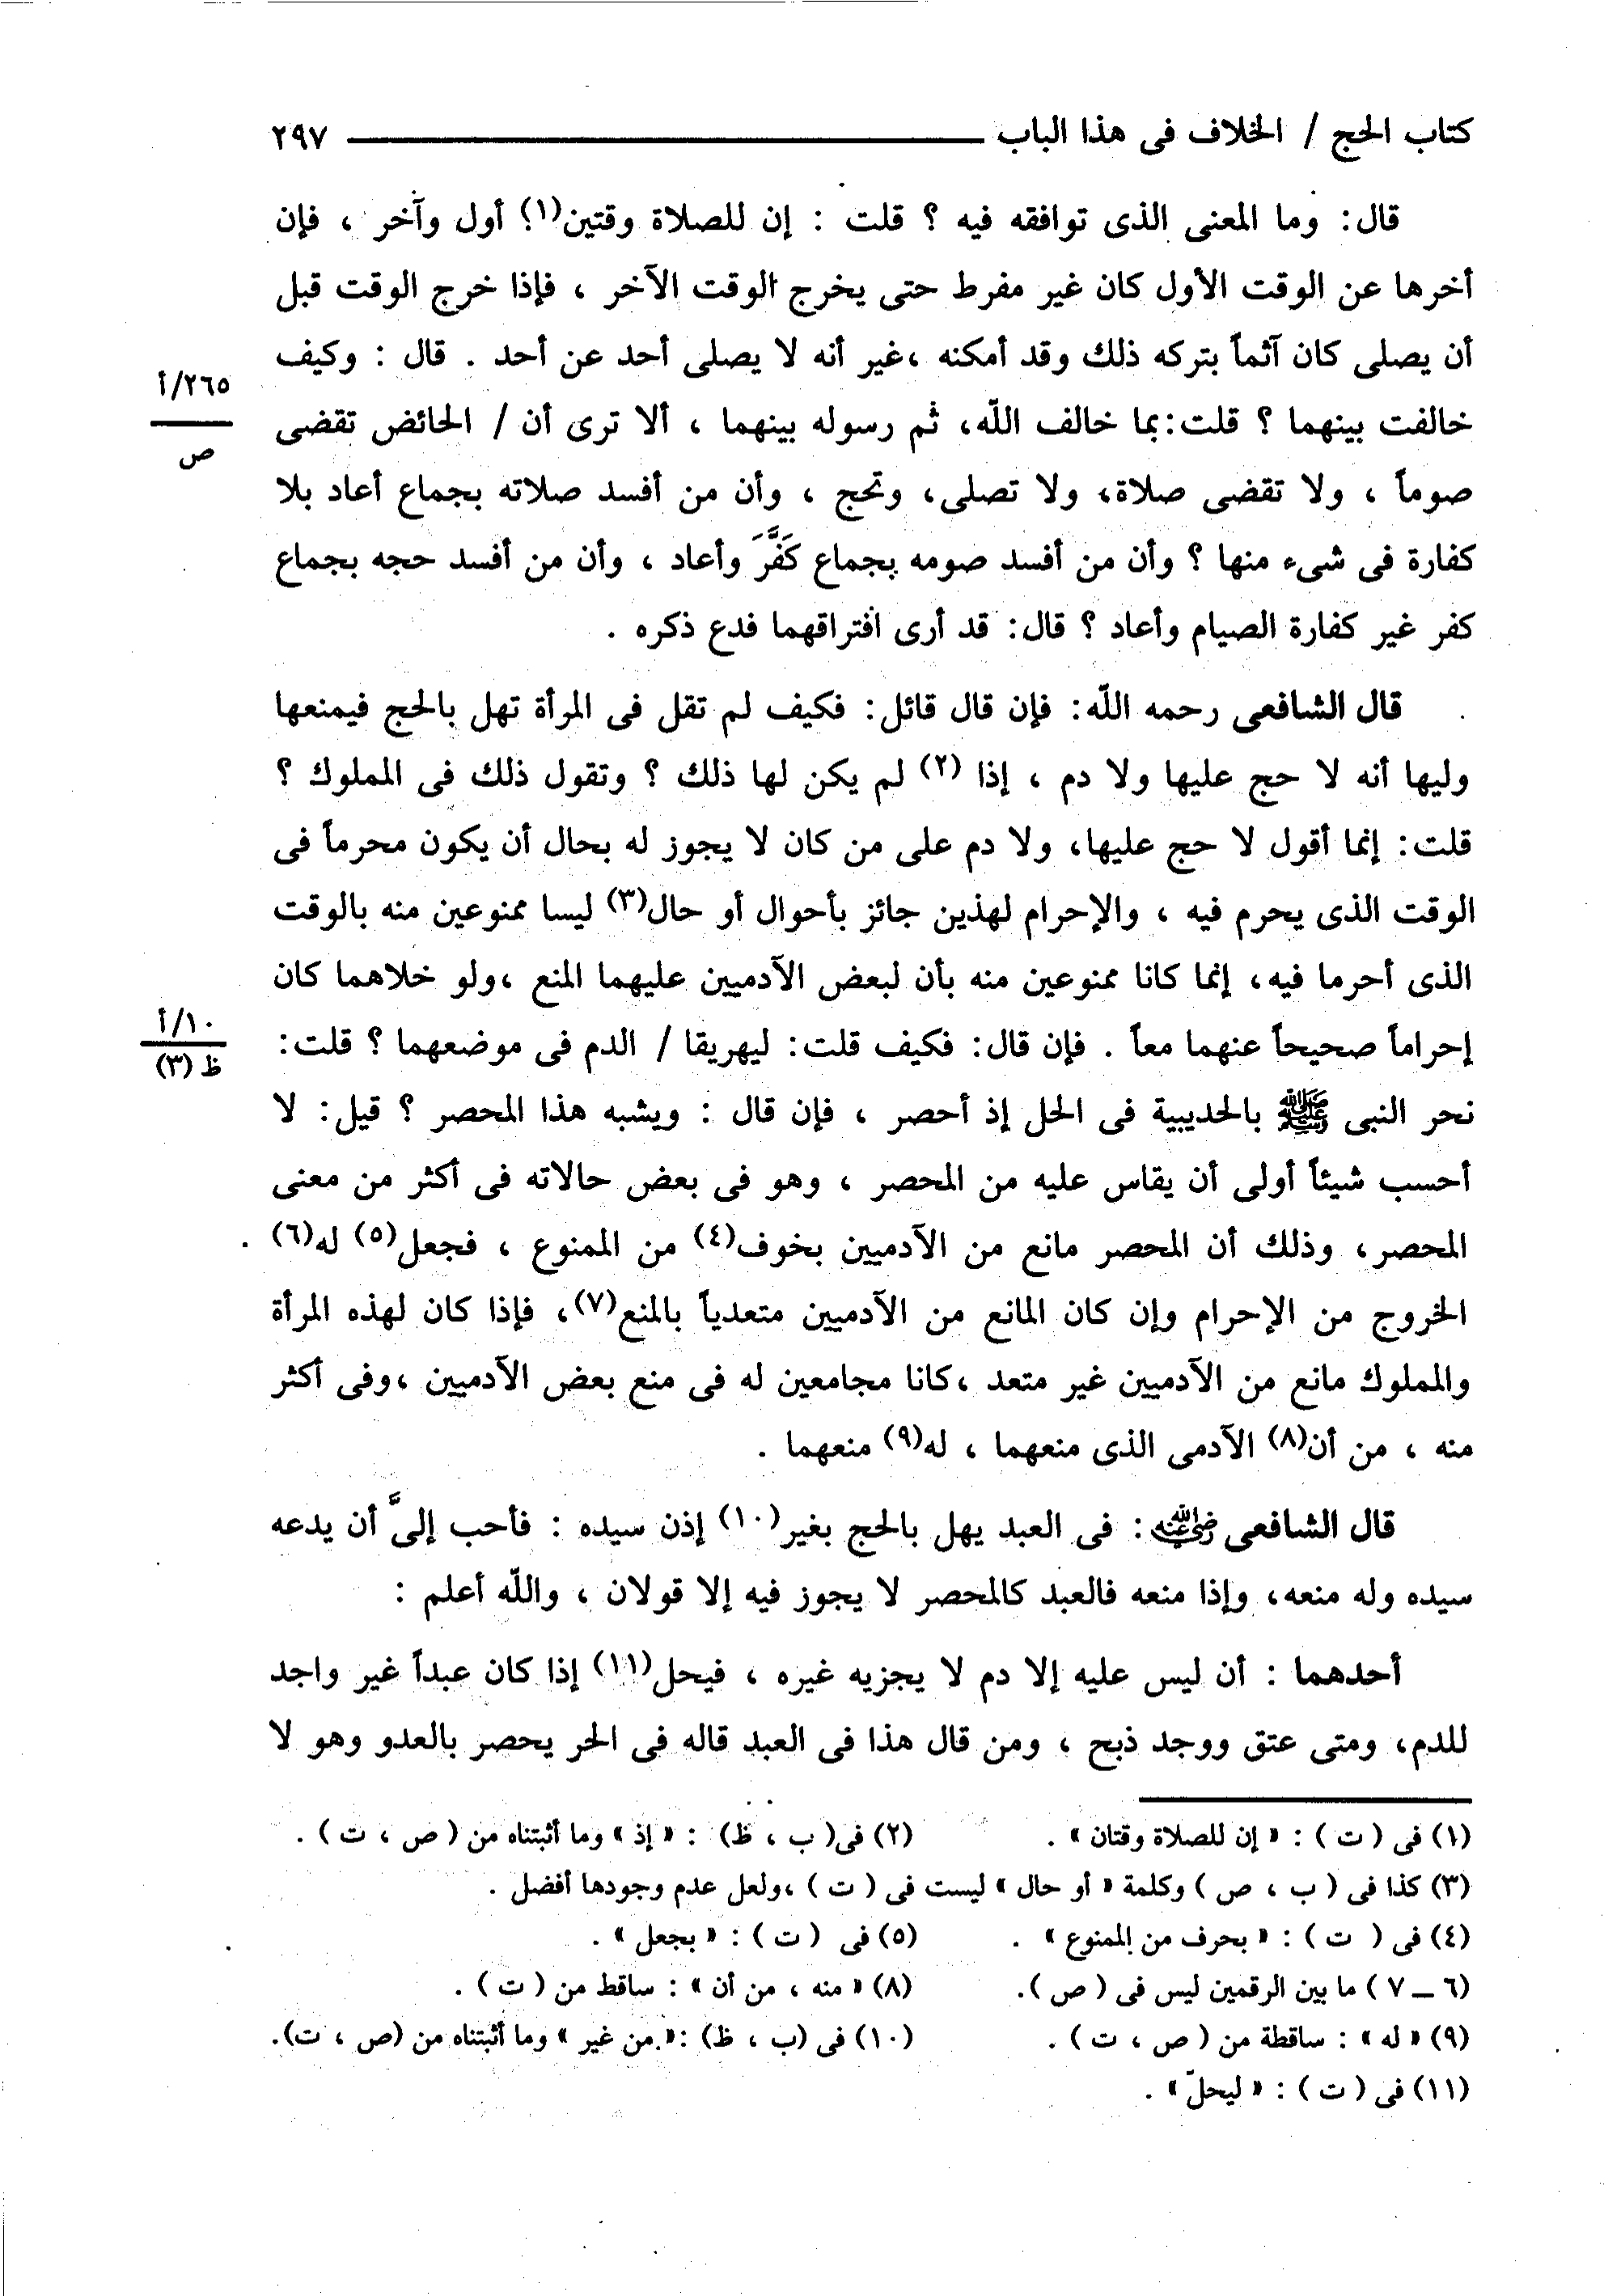 كتاب الحج / الخلاف فى هذا الباب ٢٩٧
قال: وما المعنى الذى توافقه فيه ؟ قلت : إن للصلاة وقتين(١)؛ أول وآخر ، فإن
أخرها عن الوقت الأول كان غير مفرط حتى يخرج الوقت الآخر ، فإذا خرج الوقت قبل
أن يصلى كان آثماً بتركه ذلك وقد أمكنه ،غير أنه لا يصلى أحد عن أحد . قال : وكيف
٢٦٥/أ
ص
خالفت بينهما ؟ قلت:بما خالف الله، ثم رسوله بينهما ، ألا ترى أن / الحائض تقضى
صوماً ، ولا تقضى صلاة، ولا تصلى، وتحج ، وأن من أفسد صلاته بجماع أعاد بلا
كفارة فى شىء منها ؟ وأن من أفسد صومه بجماع كَفَّرَ وأعاد ، وأن من أفسد حجه بجماع
كفر غير كفارة الصيام وأعاد ؟ قال: قد أرى افتراقهما فدع ذكره .
قال الشافعى رحمه الله: فإن قال قائل: فكيف لم تقل فى المرأة تهل بالحج فيمنعها
وليها أنه لا حج عليها ولا دم ، إذا (٢) لم يكن لها ذلك ؟ وتقول ذلك فى المملوك ؟
قلت: إنما أقول لا حج عليها، ولا دم على من كان لا يجوز له بحال أن يكون محرماً فى
الوقت الذى يحرم فيه ، والإحرام لهذين جائز بأحوال أو حال(٣) ليسا ممنوعين منه بالوقت
الذى أحرما فيه، إنما كانا ممنوعين منه بأن لبعض الآدميين عليهما المنع ،ولو خلاهما كان
إحراماً صحيحاً عنهما معاً . فإن قال: فكيف قلت: ليهريقا / الدم فى موضعهما ؟ قلت:
١٠/أ
ظ (٣)
نحر النبى ﷺ بالحديبية فى الحل إذ أحصر ، فإن قال : ويشبه هذا المحصر ؟ قيل: لا
أحسب شيئاً أولى أن يقاس عليه من المحصر ، وهو فى بعض حالاته فى أكثر من معنى
المحصر، وذلك أن المحصر مانع من الآدميين بخوف(٤) من الممنوع ، فجعل(٥) له(٦) .
الخروج من الإحرام وإن كان المانع من الآدميين متعدياً بالمنع(٧)، فإذا كان لهذه المرأة
والمملوك مانع من الآدميين غير متعد ،كانا مجامعين له فى منع بعض الآدميين ،وفى أكثر
منه ، من أن(٨) الآدمى الذى منعهما ، له(٩) منعهما .
قال الشافعى رضي الله عنه : فى العبد يهل بالحج بغير(١٠) إذن سيده : فأحب إلىَّ أن يدعه
سيده وله منعه، وإذا منعه فالعبد كالمحصر لا يجوز فيه إلا قولان ، والله أعلم :
أحدهما : أن ليس عليه إلا دم لا يجزيه غيره ، فيحل(١١) إذا كان عبداً غير واجد
للدم، ومتى عتق ووجد ذبح ، ومن قال هذا فى العبد قاله فى الحر يحصر بالعدو وهو لا
(١) فى ( ت ) : « إن للصلاة وقتان » . (٢) فى( ب ، ظ) : « إذ » وما أثبتناه من ( ص ، ت ) .
(٣) كذا فى ( ب ، ص ) وكلمة « أو حال » ليست فى ( ت ) ،ولعل عدم وجودها أفضل .
(٤) فى ( ت ) : « بحرف من الممنوع » . (٥) فى ( ت ) : « بجعل » .
(٦ ــ ٧ ) ما بين الرقمين ليس فى ( ص ). (٨) « منه ، من أن » : ساقط من ( ت ) .
(٩) « له » : ساقطة من ( ص ، ت ) . (١٠) فى (ب ، ظ) :« من غير » وما أثبتناه من (ص ، ت).
(١١) فى ( ت ) : « ليحلّ » .